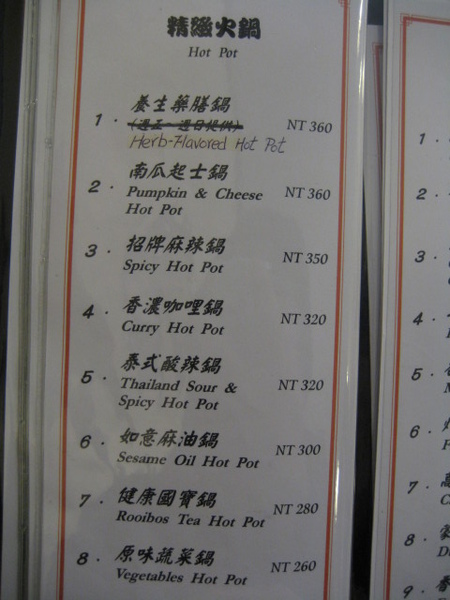 精緻火鍋
Hot Pot
1. 養生藥膳鍋
(週五~週日提供)
Herb-Flavored Hot Pot NT 360
2. 南瓜起士鍋
Pumpkin & Cheese NT 360
Hot Pot
3. 招牌麻辣鍋
Spicy Hot Pot NT 350
4. 香濃咖哩鍋
Curry Hot Pot NT 320
5. 泰式酸辣鍋
Thailand Sour & NT 320
Spicy Hot Pot
6. 如意麻油鍋
Sesame Oil Hot Pot NT 300
7. 健康國寶鍋
Rooibos Tea Hot Pot NT 280
8. 原味蔬菜鍋
Vegetables Hot Pot NT 260
1.
2.
3.
4.
5.
6.
7.
8.
9.